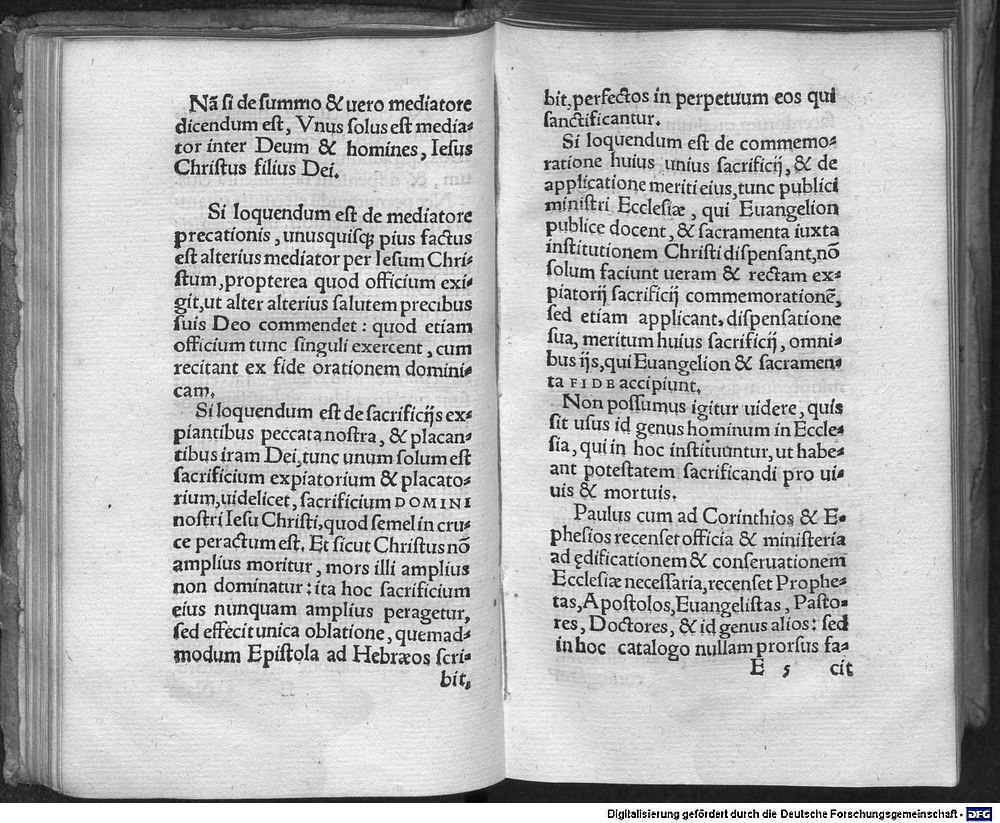 Nã si de summo & uero mediatore
dicendum est, Vnus solus est media⸗
tor inter Deum & homines, Iesus
Christus filius Dei.
Si loquendum est de mediatore
precationis, unusquisqꝫ pius factus
est alterius mediator per Iesum Chri⸗
stum, propterea quod officium exi⸗
git, ut alter alterius salutem precibus
suis Deo commendet: quod etiam
officium tunc singuli exercent, cum
recitant ex fide orationem domini⸗
cam.
Si loquendum est de sacrificijs ex⸗
piantibus peccata nostra, & placan⸗
tibus iram Dei, tunc unum solum est
sacrificium expiatorium & placato⸗
rium, uidelicet, sacrificium DOMINI
nostri Iesu Christi, quod semel in cru⸗
ce peractum est. Et sicut Christus nõ
amplius moritur, mors illi amplius
non dominatur: ita hoc sacrificium
eius nunquam amplius peragetur,
sed effecit unica oblatione, quemad⸗
modum Epistola ad Hebræos scri⸗
bit,
bit, perfectos in perpetuum eos qui
sanctificantur.
Si loquendum est de commemo⸗
ratione huius unius sacrificij, & de
applicatione meriti eius, tunc publici
ministri Ecclesiæ, qui Euangelion
publice docent, & sacramenta iuxta
institutionem Christi dispensant, nõ
solum faciunt ueram & rectam ex⸗
piatorij sacrificij commemorationẽ,
sed etiam applicant, dispensatione
sua, meritum huius sacrificij, omni⸗
bus ijs, qui Euangelion & sacramen⸗
ta FIDE accipiunt.
Non possumus igitur uidere, quis
sit usus id genus hominum in Eccle⸗
sia, qui in hoc instituuntur, ut habe⸗
ant potestatem sacrificandi pro ui⸗
uis & mortuis.
Paulus cum ad Corinthios & E⸗
phesios recenset officia & ministeria
ad ędificationem & conseruationem
Ecclesiæ necessaria, recenset Prophe⸗
tas, Apostolos, Euangelistas, Pasto⸗
res, Doctores, & id genus alios: sed
in hoc catalogo nullam prorsus fa⸗
E 5 cit
Digitalisierung gefördert durch die Deutsche Forschungsgemeinschaft - DFG